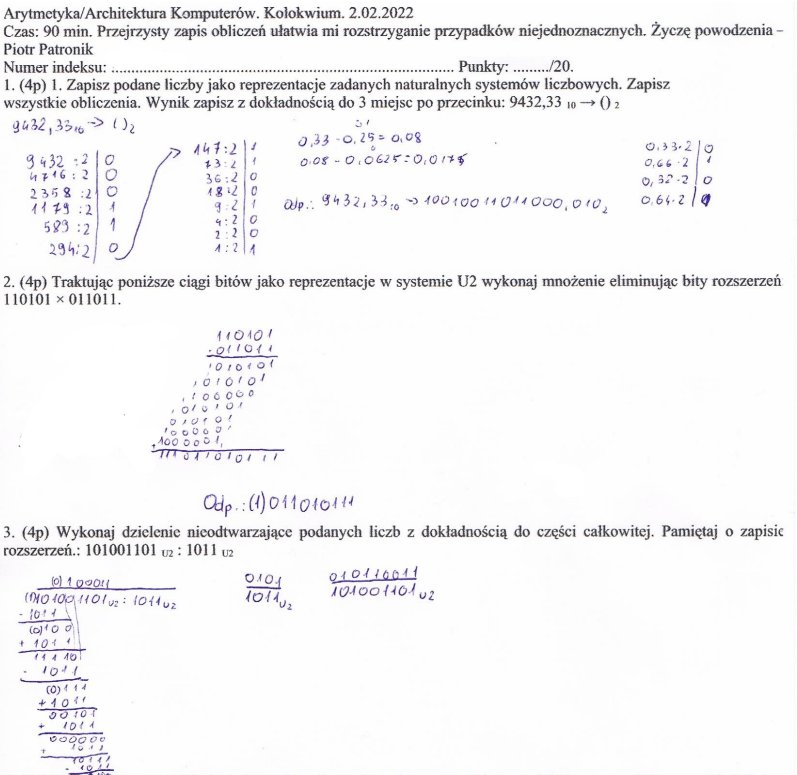 Arytmetyka/Architektura Komputerów. Kolokwium. 2.02.2022
Czas: 90 min. Przejrzysty zapis obliczeń ułatwia mi rozstrzyganie przypadków niejednoznacznych. Życzę powodzenia –
Piotr Patronik
Numer indeksu: ........................................................................... Punkty: ........./20.
1. (4p) 1. Zapisz podane liczby jako reprezentacje zadanych naturalnych systemów liczbowych. Zapisz
wszystkie obliczenia. Wynik zapisz z dokładnością do 3 miejsc po przecinku: 9432,33 10 → () 2
9432,33 10 → ( )2
9432 :2 | 0
4716 : 2 | 0
2358 :2 | 0
1179 :2 | 1
589 :2 | 1
294:2 | 0
147:2 | 1
73:2 | 1
36:2 | 0
18:2 | 0
9:2 | 1
4:2 | 0
2:2 | 0
1:2 | 1
0,33 - 0,25 = 0,08
0.08 - 0,0625 = 0,0175
Odp.: 9432,33 10 → 10010011011000,010 2
0,33·2 | 0
0,66·2 | 1
0,32·2 | 0
0,64·2 |
2. (4p) Traktując poniższe ciągi bitów jako reprezentacje w systemie U2 wykonaj mnożenie eliminując bity rozszerzeń
110101 × 011011.
110101
·011011
1010101
1010101
1100000
1010101
010101
100000
+1000001
11101101010111
Odp.: (1)011010111
3. (4p) Wykonaj dzielenie nieodtwarzające podanych liczb z dokładnością do części całkowitej. Pamiętaj o zapisie
rozszerzeń.: 101001101 U2 : 1011 U2
(0)100011
(1)101001101U2 : 1011U2
- 1011
(0)100
+ 1011
11110
- 1011
(0)111
+1011
00101
+ 1011
000000
+ 1011
10111
- 1011
0101
1011U2
010110011
101001101 U2